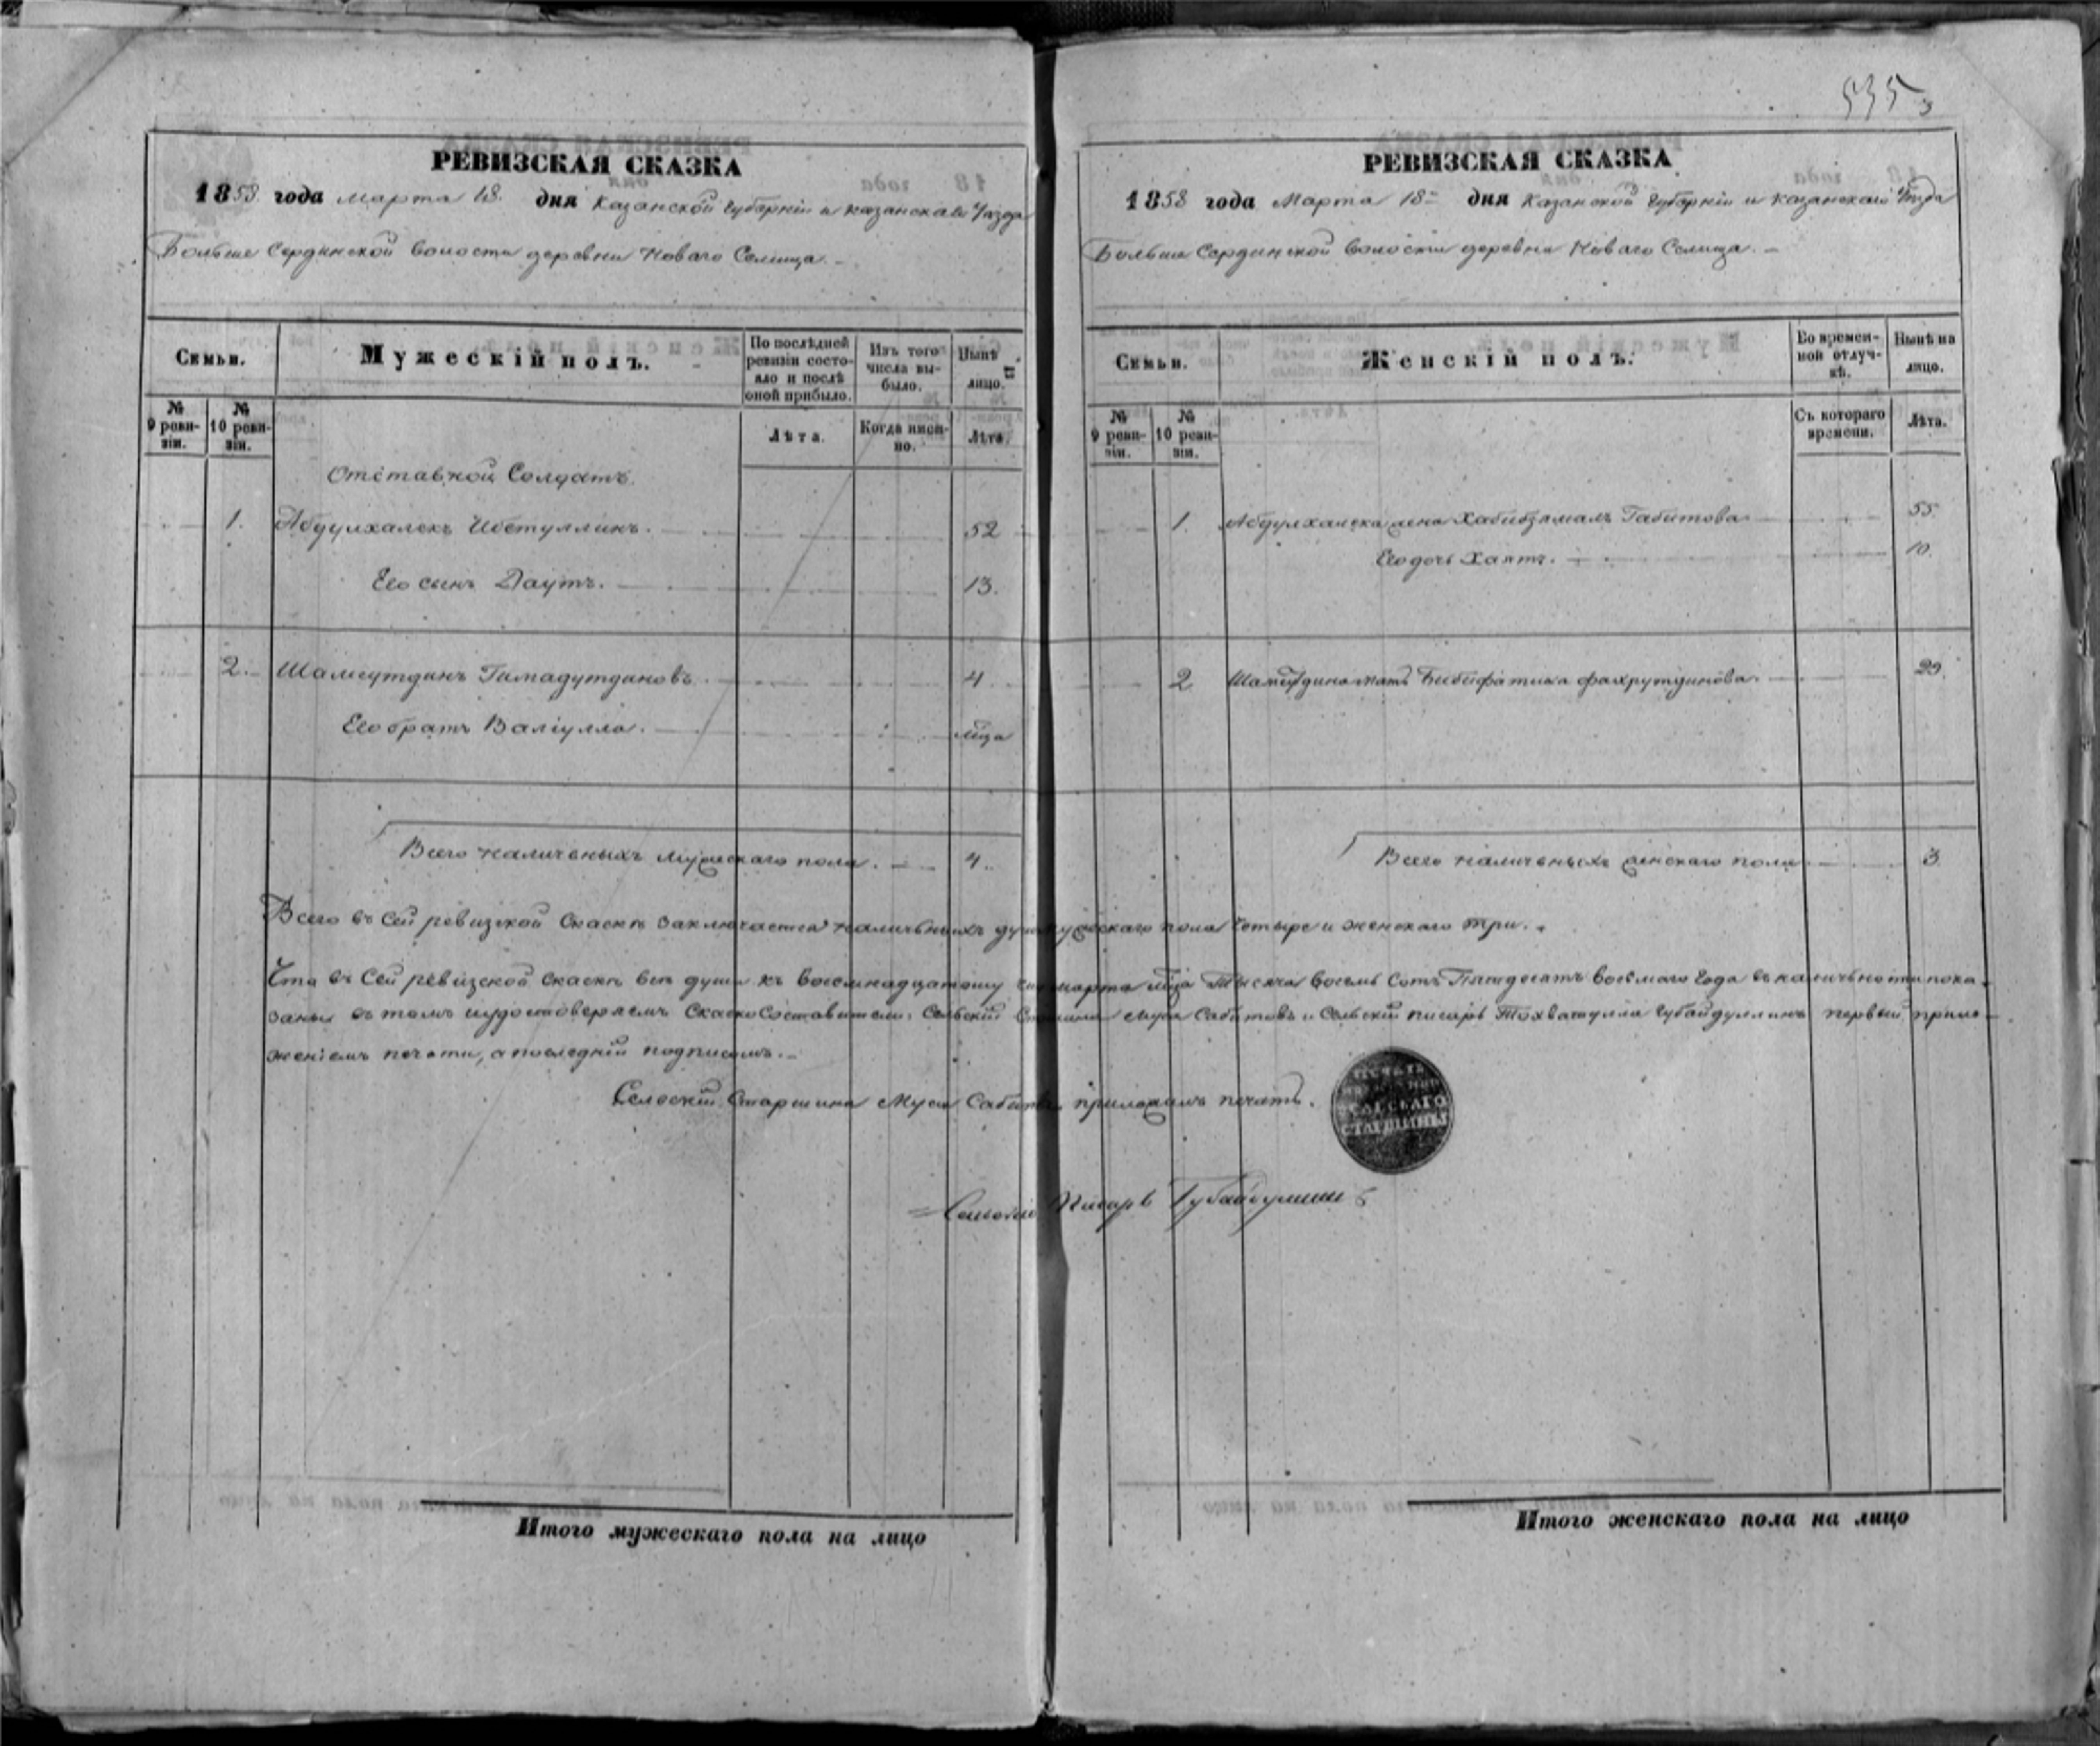 535
РЕВИЗСКАЯ СКАЗКА
1858 года Марта 18 дня Казанской губерніи и Казанскаго Уѣзда
Больше Сердинской волости деревни Новаго Селища. –
Семьи.
Мужескій полъ.
По послѣдней ревизіи состояло и послѣ оной прибыло.
Изъ того числа выбыло.
Нынѣ на лицо.
№ 9 ревизіи.
№ 10 ревизіи.
Лѣта.
Когда именно.
Лѣта.
Отставной Солдатъ.
1. Абдулхалекъ Ибетуллинъ. 52
Его сынъ Даутъ. 13.
2. Шамсутдинъ Гимадутдиновъ. 4
Его братъ Валіулла.
Всего наличныхъ мужескаго пола. 4.
РЕВИЗСКАЯ СКАЗКА
1858 года Марта 18 дня Казанской губерніи и Казанскаго Уѣзда
Больше Сердинской волости деревни Новаго Селища. –
Семьи.
Женскій полъ.
Во временной отлучкѣ.
Нынѣ на лицо.
№ 9 ревизіи.
№ 10 ревизіи.
Съ котораго времени.
Лѣта.
1. Абдулхалека жена Хабибзямалъ Габитова 55.
Его дочь Хаятъ. 10.
2 мать Бибифатиха Фахрутдинова. 29.
Всего наличныхъ женскаго пола 3.
Всего въ сей ревизской скаскѣ заключается наличныхъ душъ мужескаго пола четыре и женскаго три.
Что въ сей ревизской скаскѣ всѣ души къ восемнадцатому Марта Тысяча восемь сотъ Пятдесятъ восьмаго года въ наличности пока-
заны въ томъ и удостоверяемъ скаскосоставители: Сельскій Старшина Муса Сабитовъ и Сельскій писарь Тохватулла Губайдуллинъ первый прило-
женіемъ печати, а последній подписомъ. –
Сельскій Старшина Муса Сабитовъ приложилъ печать.
ПЕЧАТЬ
СЕЛЬСКАГО
СТАРШИНЫ
Сельскій Писарь Губайдуллинъ
Итого мужескаго пола на лицо
Итого женскаго пола на лицо